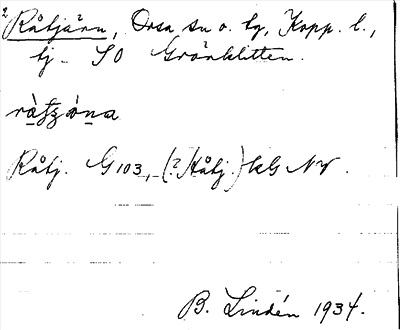 2 Råtjärn, Orsa sn o. tg, Kopp. l.,
tj - SO Grönklitten.
Råtj. G 103, - (? /Håtj.) kG NV.
B. Lindén 1934.